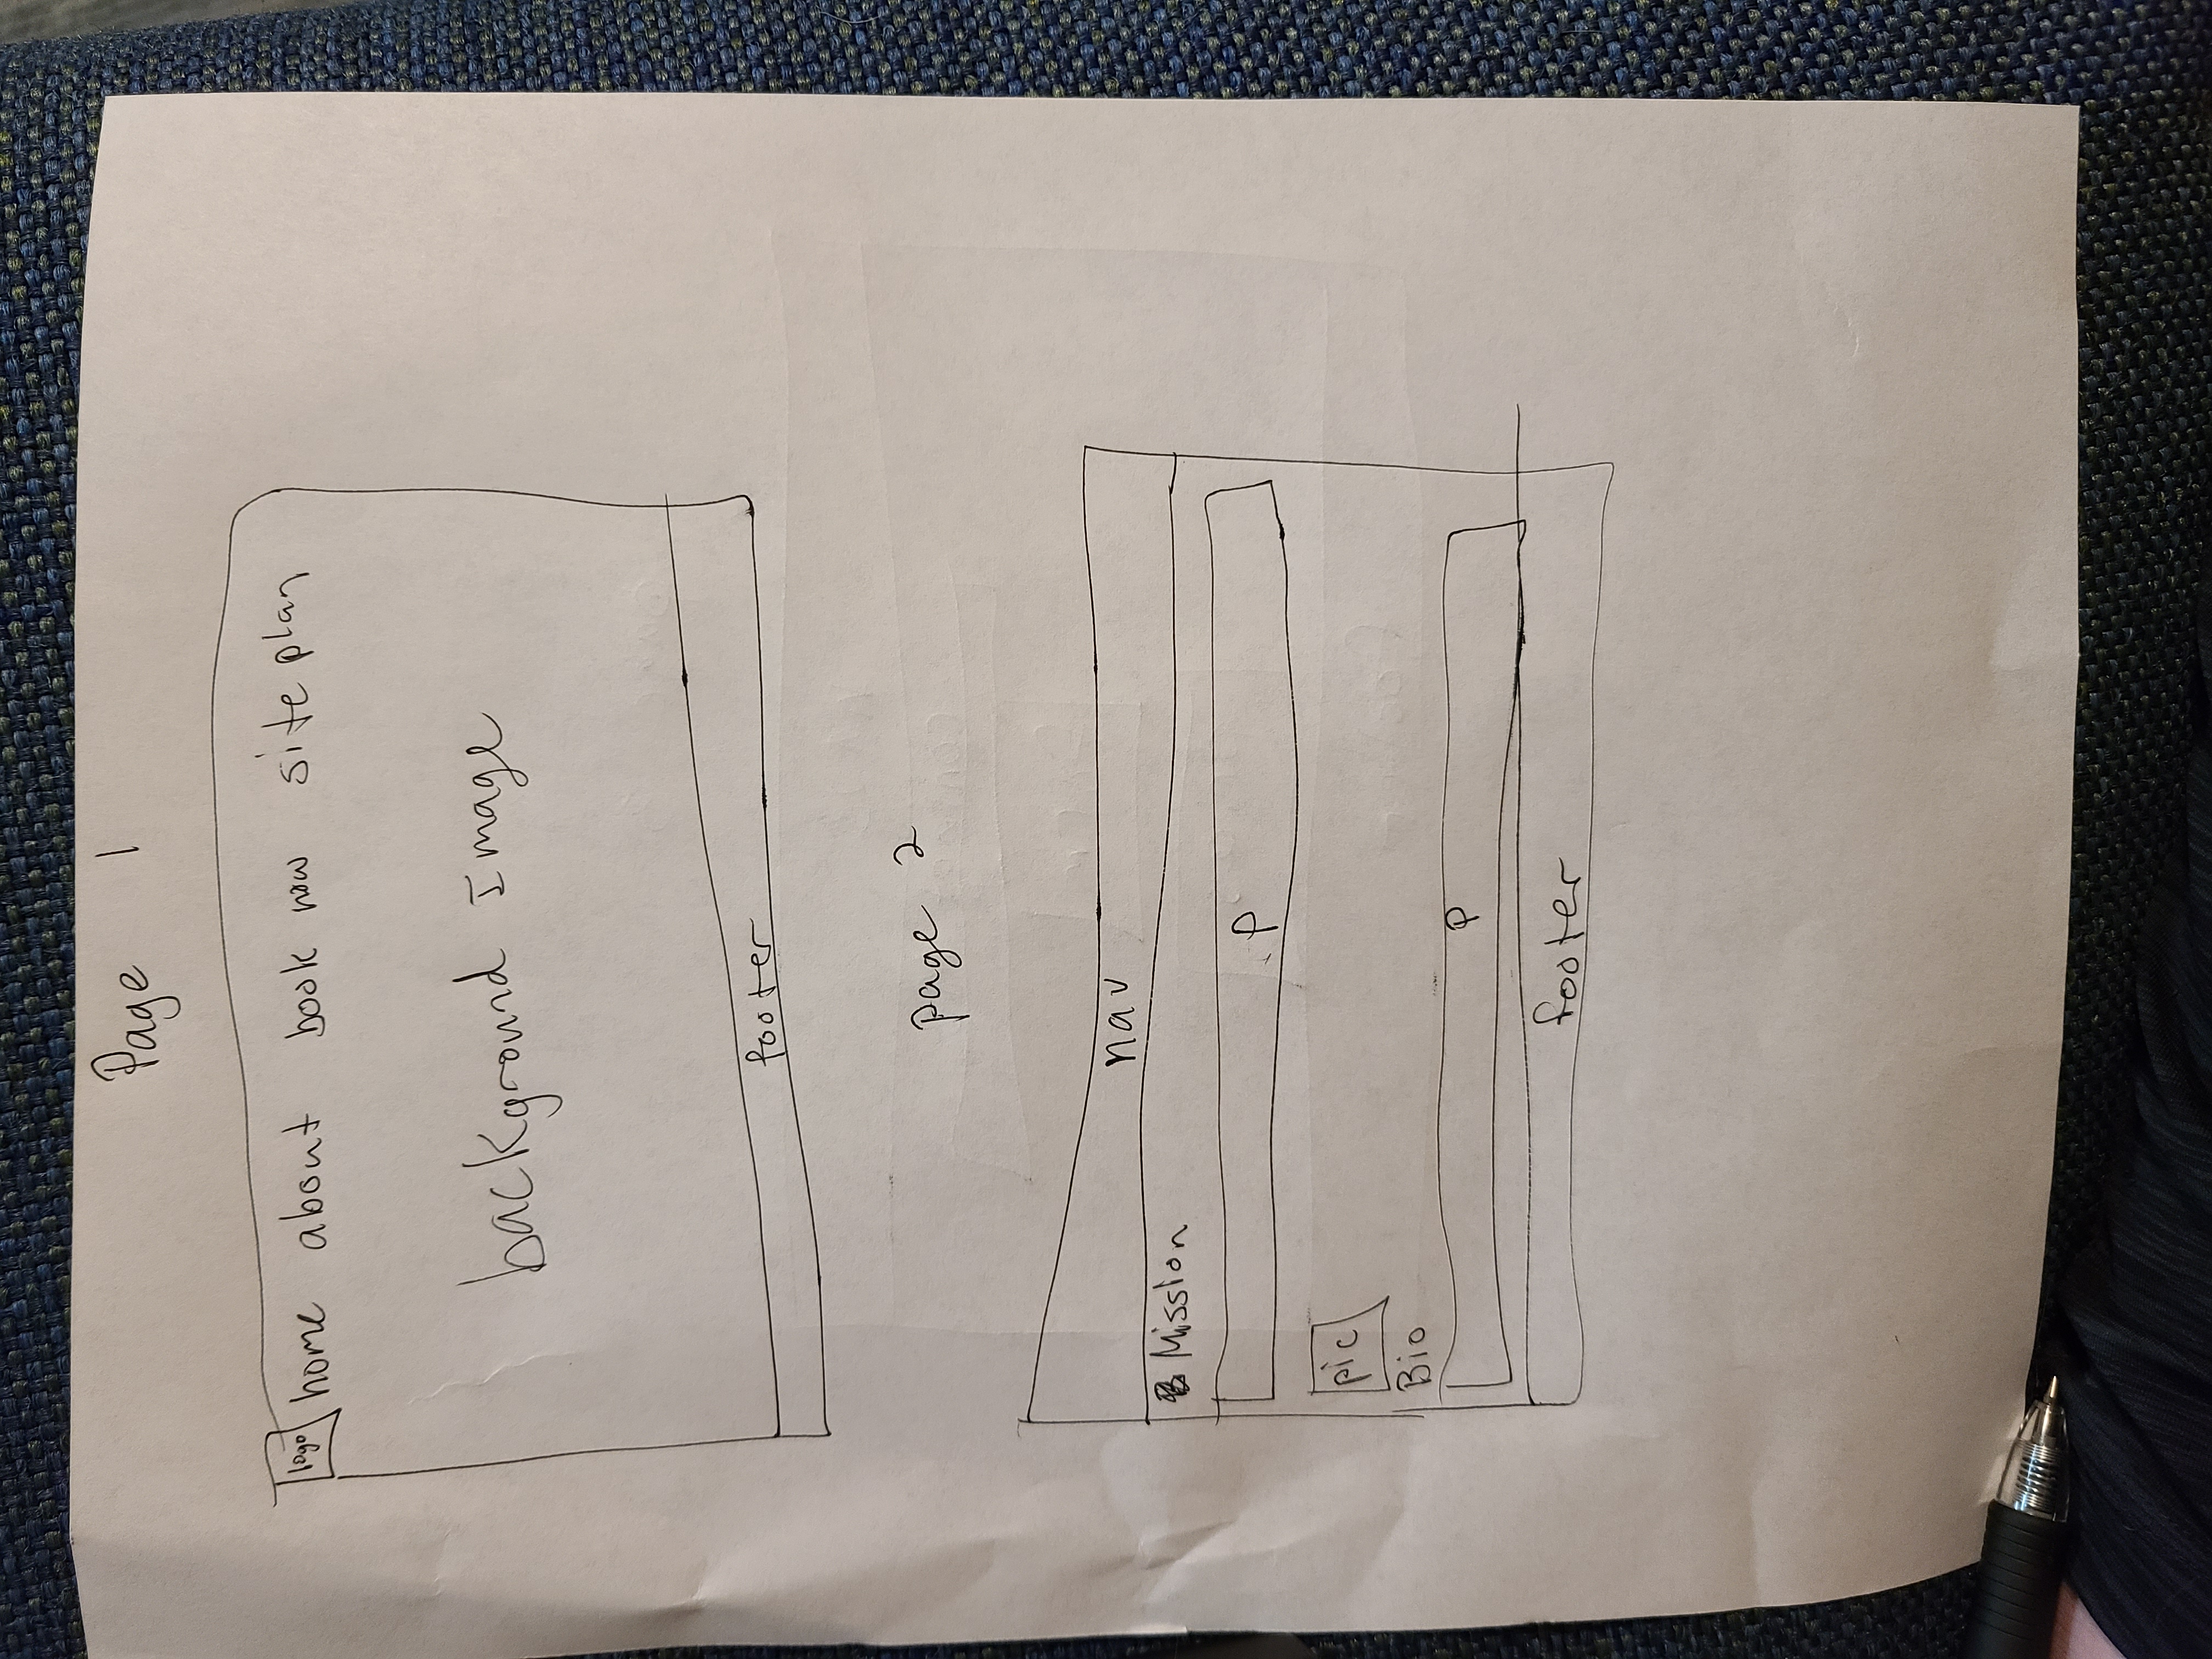 Page 1
logo home about book now site plan
background Image
footer
page 2
nav
Mission
P
pic
Bio
P
footer